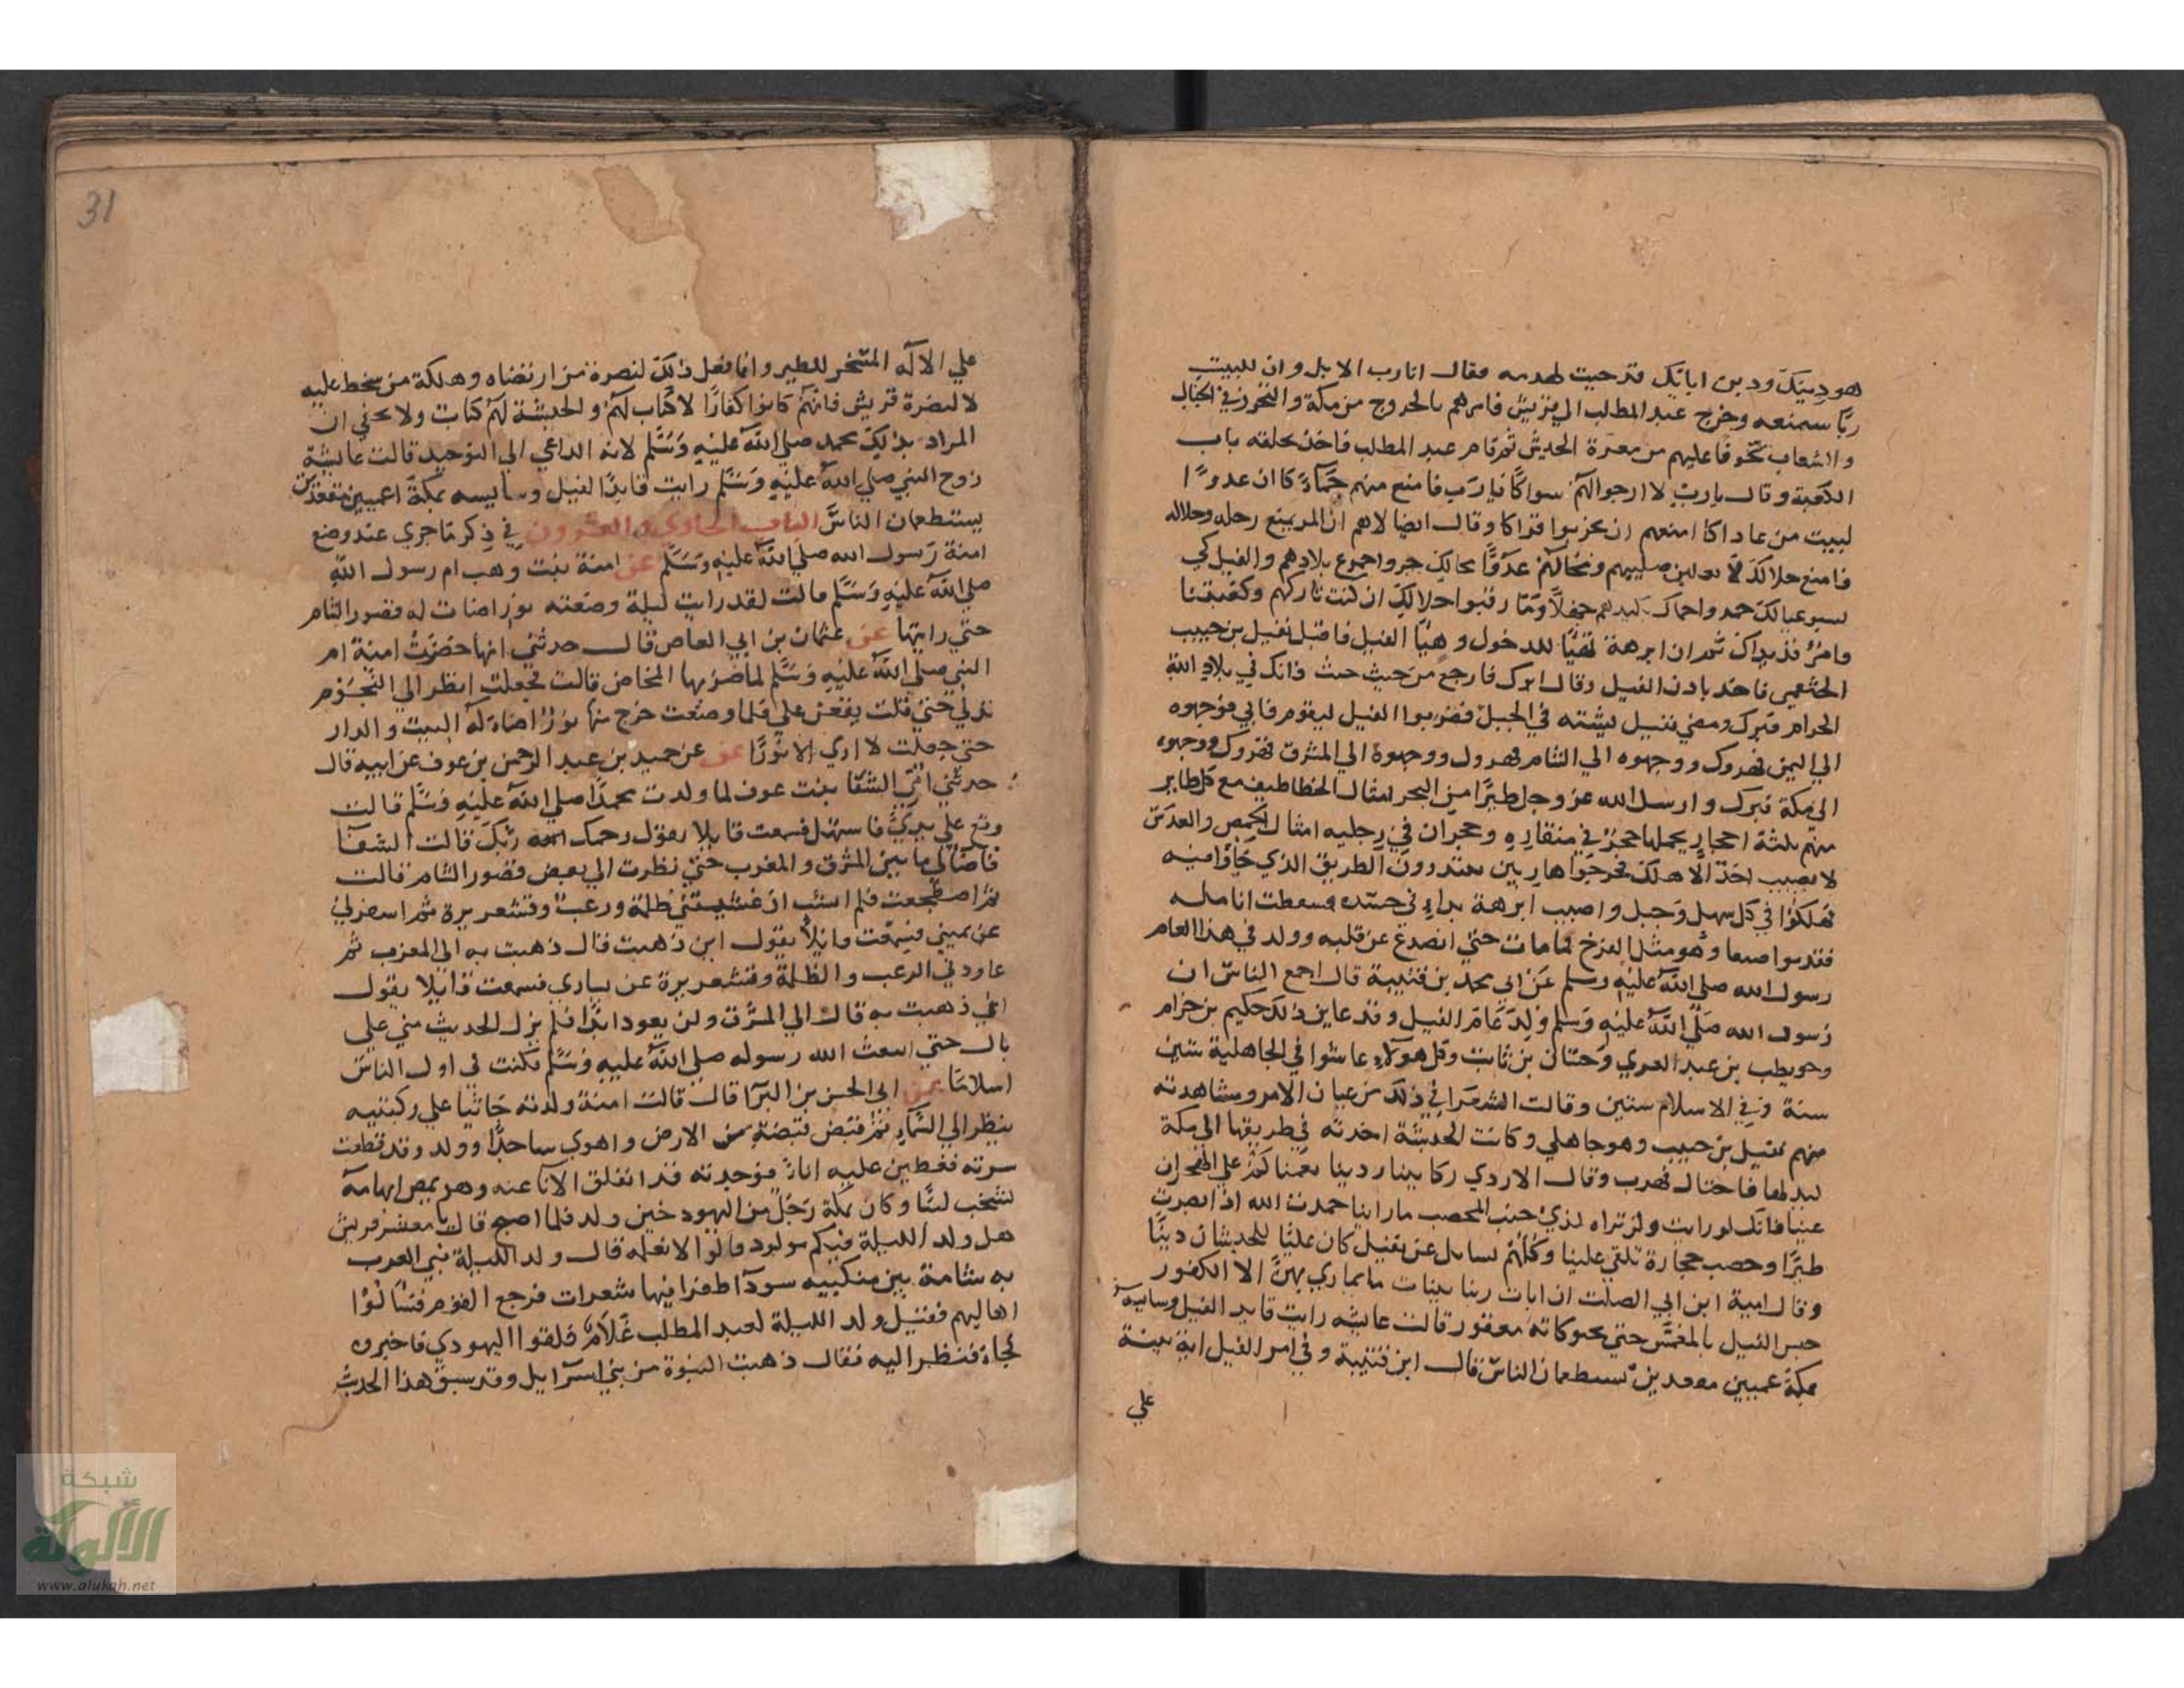 هو دينك ودين ابايك قد جيت لهدمه فقال انا رب الابل وان للبيت
ربا سيمنعه وخرج عبد المطلب الي قريش فامرهم بالخروج من مكة والتحرز في الجبال
والشعاب تخوفا عليهم من معرة الجيش ثم قام عبد المطلب فاخذ بحلقه باب
الكعبة وقال يا رب لا ارجوا لهم سواكا يا رب فامنع منهم حماكا ان عدو ا
لبيت من عاداكا امنعهم ان يخربوا قراكا وقال ايضا لاهم ان المر يمنع رحله وحلاله
فامنع حلالك لا يغلبن صليبهم ومحالهم عدوا محالك جروا جموع بلادهم والفيل كي
يسبو عيالك عمدوا حماك بكيدهم جهلا وما رقبوا حلالك ان كنت تاركهم وكعبتنا
فامر فذ بداك ثم ان ابرهة تهيا للدخول وهيا الفيل فاقبل نفيل بن حبيب
الخثعمي فاخذ باذن الفيل وقال ابرك فارجع من حيث جيت فانك في بلاد الله
الحرام فبرك ومضي نفيل ليشته في الجبل فضربوا الفيل ليقوم فابي فوجهوه
الي اليمن فهرول ووجهوه الي الشام فهرول ووجهوه الي المشرق فهرول ووجهوه
الي مكة فبرك وارسل الله عز وجل طيرا من البحر امثال الخطاطيف مع كل طاير
منهم ثلثة احجار يحملها حجر في منقاره وحجران في رجليه امثال الحمص والعدس
لا يصيب احدا الا هلك فخرجوا هاربين يبتدرون الطريق الذي جاوا منه
فهلكوا في كل سهل وجبل واصيب ابرهة بداء في جسده فسقطت انامله
فقدموا صنعا وهو مثل الفرخ فما مات حتي انصدع عن قلبه وولد في هذا العام
رسول الله صلي الله عليه وسلم عن ابي محمد بن قتيبة قال اجمع الناس ان
رسول الله صلي الله عليه وسلم ولد عام الفيل وقد عاين ذلك حكيم بن حزام
وحويطب بن عبد العزي وحسان بن ثابت وكل هولاء عاشوا في الجاهلية ستين
سنة وفي الاسلام ستين وقالت الشعرا في ذلك من عيان الامر ومشاهدته
منهم نفيل بن حبيب وهو جاهلي وكانت الحبشة اخذته في طريقها الي مكة
ليدلها فاحتال فهرب وقال الا ردي ركابينا ردينا نعمنا كم علي الهجران
عينا فانك لو رايت ولن تراه لذي جنب المحصب ما راينا حمدت الله اذ ابصرت
طيرا وحصب حجارة تلقي علينا وكلهم يسايل عن نفيل كان علينا للحبشان دينا
وقال امية ابن ابي الصلت ان ايات ربنا بينات ما يماري بهن الا الكفور
حبس الفيل بالمغمس حتي يحبو كانه معقور قالت عايشه رايت قايد الفيل وسايسه
بمكة عميين مقعدين يستطعمان الناس قال ابن قتيبة وفي امر الفيل اية بينة
علي
31
علي الاله المسخر للطير وانما فعل ذلك لنصرة من ارتضاه وهلكة من سخط عليه
لا لنصرة قريش فانهم كانوا كفارا لا كتاب لهم والحبشة لهم كتاب ولا يخفي ان
المراد بذلك محمد صلي الله عليه وسلم لانه الداعي الي التوحيد قالت عايشة
زوج النبي صلي الله عليه وسلم رايت قايد الفيل وسايسه بمكة اعميين مقعدين
يستطعمان الناس الباب الحادي والعشرون في ذكر ما جري عند وضع
امنة رسول الله صلي الله عليه وسلم عن امنة بنت وهب ام رسول الله
صلي الله عليه وسلم قالت لقد رايت ليلة وضعته نورا اضات له قصور الشام
حتي رايتها عن عثمان بن ابي العاص قال حدثتني انها حضرت امنة ام
النبي صلي الله عليه وسلم لما ضربها المخاض قالت فجعلت انظر الي النجوم
تدلي حتي قلت يقعن علي فلما وضعت خرج منها نورا اضاء له البيت والدار
حتي جعلت لا اري الا نورا عن عن حميد بن عبد الرحمن بن عوف عن ابيه قال
حدثتني امي الشفا بنت عوف لما ولدت محمدا صلي الله عليه وسلم قالت
وقع علي يدي فاستهل فسمعت قايلا يقول رحمك الله ربك قالت الشفا
فاضا لي ما بين المشرق والمغرب حتي نظرت الي بعض قصور الشام قالت
ثم اضطجعت فلم انشب ان غشيتني ظلمة ورعب وقشعريرة ثم اسفر لي
عن يميني فسمعت قايلا يقول اين ذهبت قال ذهبت به الي المغرب ثم
عاودني الرعب والظلمة وقشعريرة عن يساري فسمعت قايلا يقول
اين ذهبت به قال الي المشرق ولن يعود ابدا فلم يزل الحديث مني علي
بال حتي ابتعث الله رسوله صلي الله عليه وسلم فكنت في اول الناس
اسلاما عن ابي الحسن بن البرا قال قالت امنة ولدته جاثيا علي ركبتيه
ينظر الي السماء ثم قبض قبضة من الارض واهوي ساجدا وولد وقد قطعت
سرته فغطين عليه اناء فوجدته قد انفلق الانا عنه وهو يمص ابهامه
تشخب لبنا وكان بمكة رجل من اليهود حين ولد فلما اصبح قال يا معشر قريش
هل ولد الليلة فيكم مولود قالوا لا نعلمه قال ولد الليلة نبي العرب
به شامة بين منكبيه سودا ظفرا فيها شعرات فرجع القوم فسالوا
اهاليهم فقيل ولد الليلة لعبد المطلب غلام فلقوا اليهودي فاخبروه
فجاء فنظر اليه فقال ذهبت النبوة من بني اسراييل وقد سبق هذا الحديث
شبكة
الألوكة
www.alukah.net